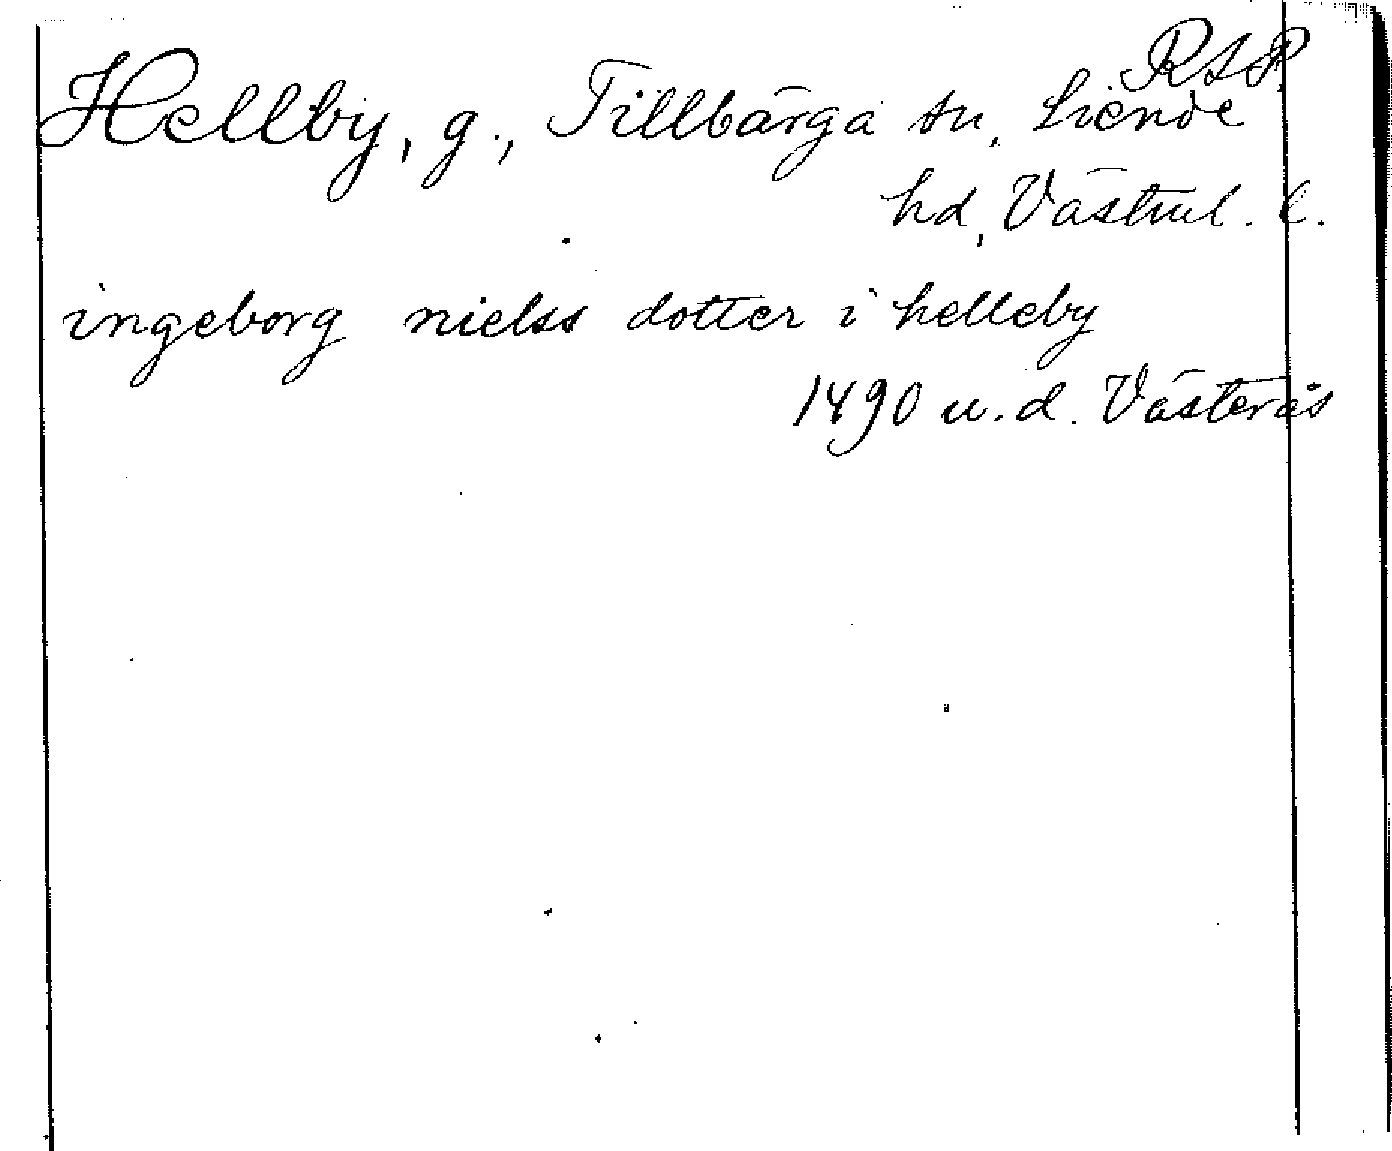 RAP.
Hellby, g., Tillbärga sn, Siende
hd, Västml. l.
ingeborg nielss dotter i helleby
1490 u. d. Västerås